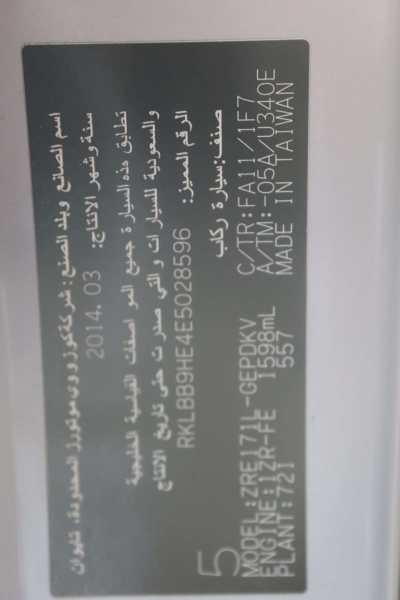 اسم الصانع وبلد الصنع: شركة كوزووي موتورز المحدودة، تايوان
سنة وشهر الانتاج: 2014.03
تطابق هذه السيارة جميع المواصفات القياسية الخليجية
والسعودية للسيارات والتي صدرت حتى تاريخ الانتاج
الرقم المميز: RKLBB9HE4E5028596
صنف: سيارة ركاب
5
MODEL:ZRE171L-GEPDKV C/TR:FA11/1F7
ENGINE:1ZR-FE 1598mL A/TM:-05A/U340E
PLANT:721 557 MADE IN TAIWAN